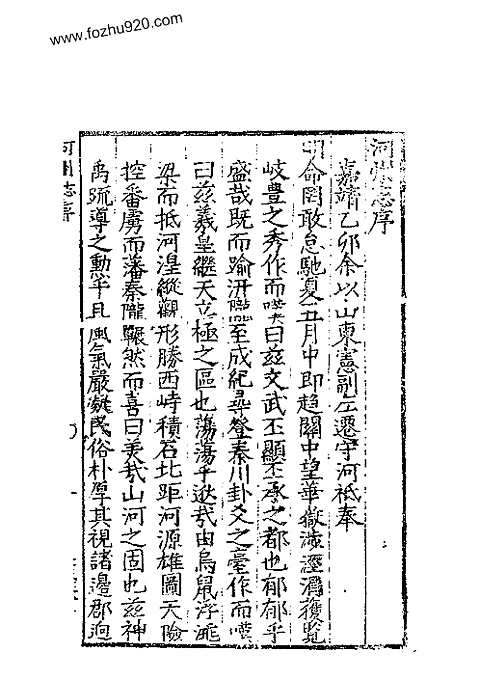 www.fozhu920.com
河州志序
嘉靖乙卯余以山東憲副左遷守河祗奉
明命罔敢怠馳夏五月中即趨關中望華嶽涉涇渭獲覧
岐豊之秀作而嘆曰兹文武丕顯丕承之都也郁郁乎
盛哉既而踰汧隴至成紀尋登秦川卦爻之臺作而嘆
曰兹羲皇繼天立極之區也蕩蕩乎逖哉由鳥鼠浮洮
梁而抵河湟縱觀形勝西峙積石北距河源雄圖天險
控番虜而藩秦隴囅然而喜曰美哉山河之固也兹神
禹疏導之勲乎且風氣嚴凝民俗朴厚其視諸邊郡逈
河州志序